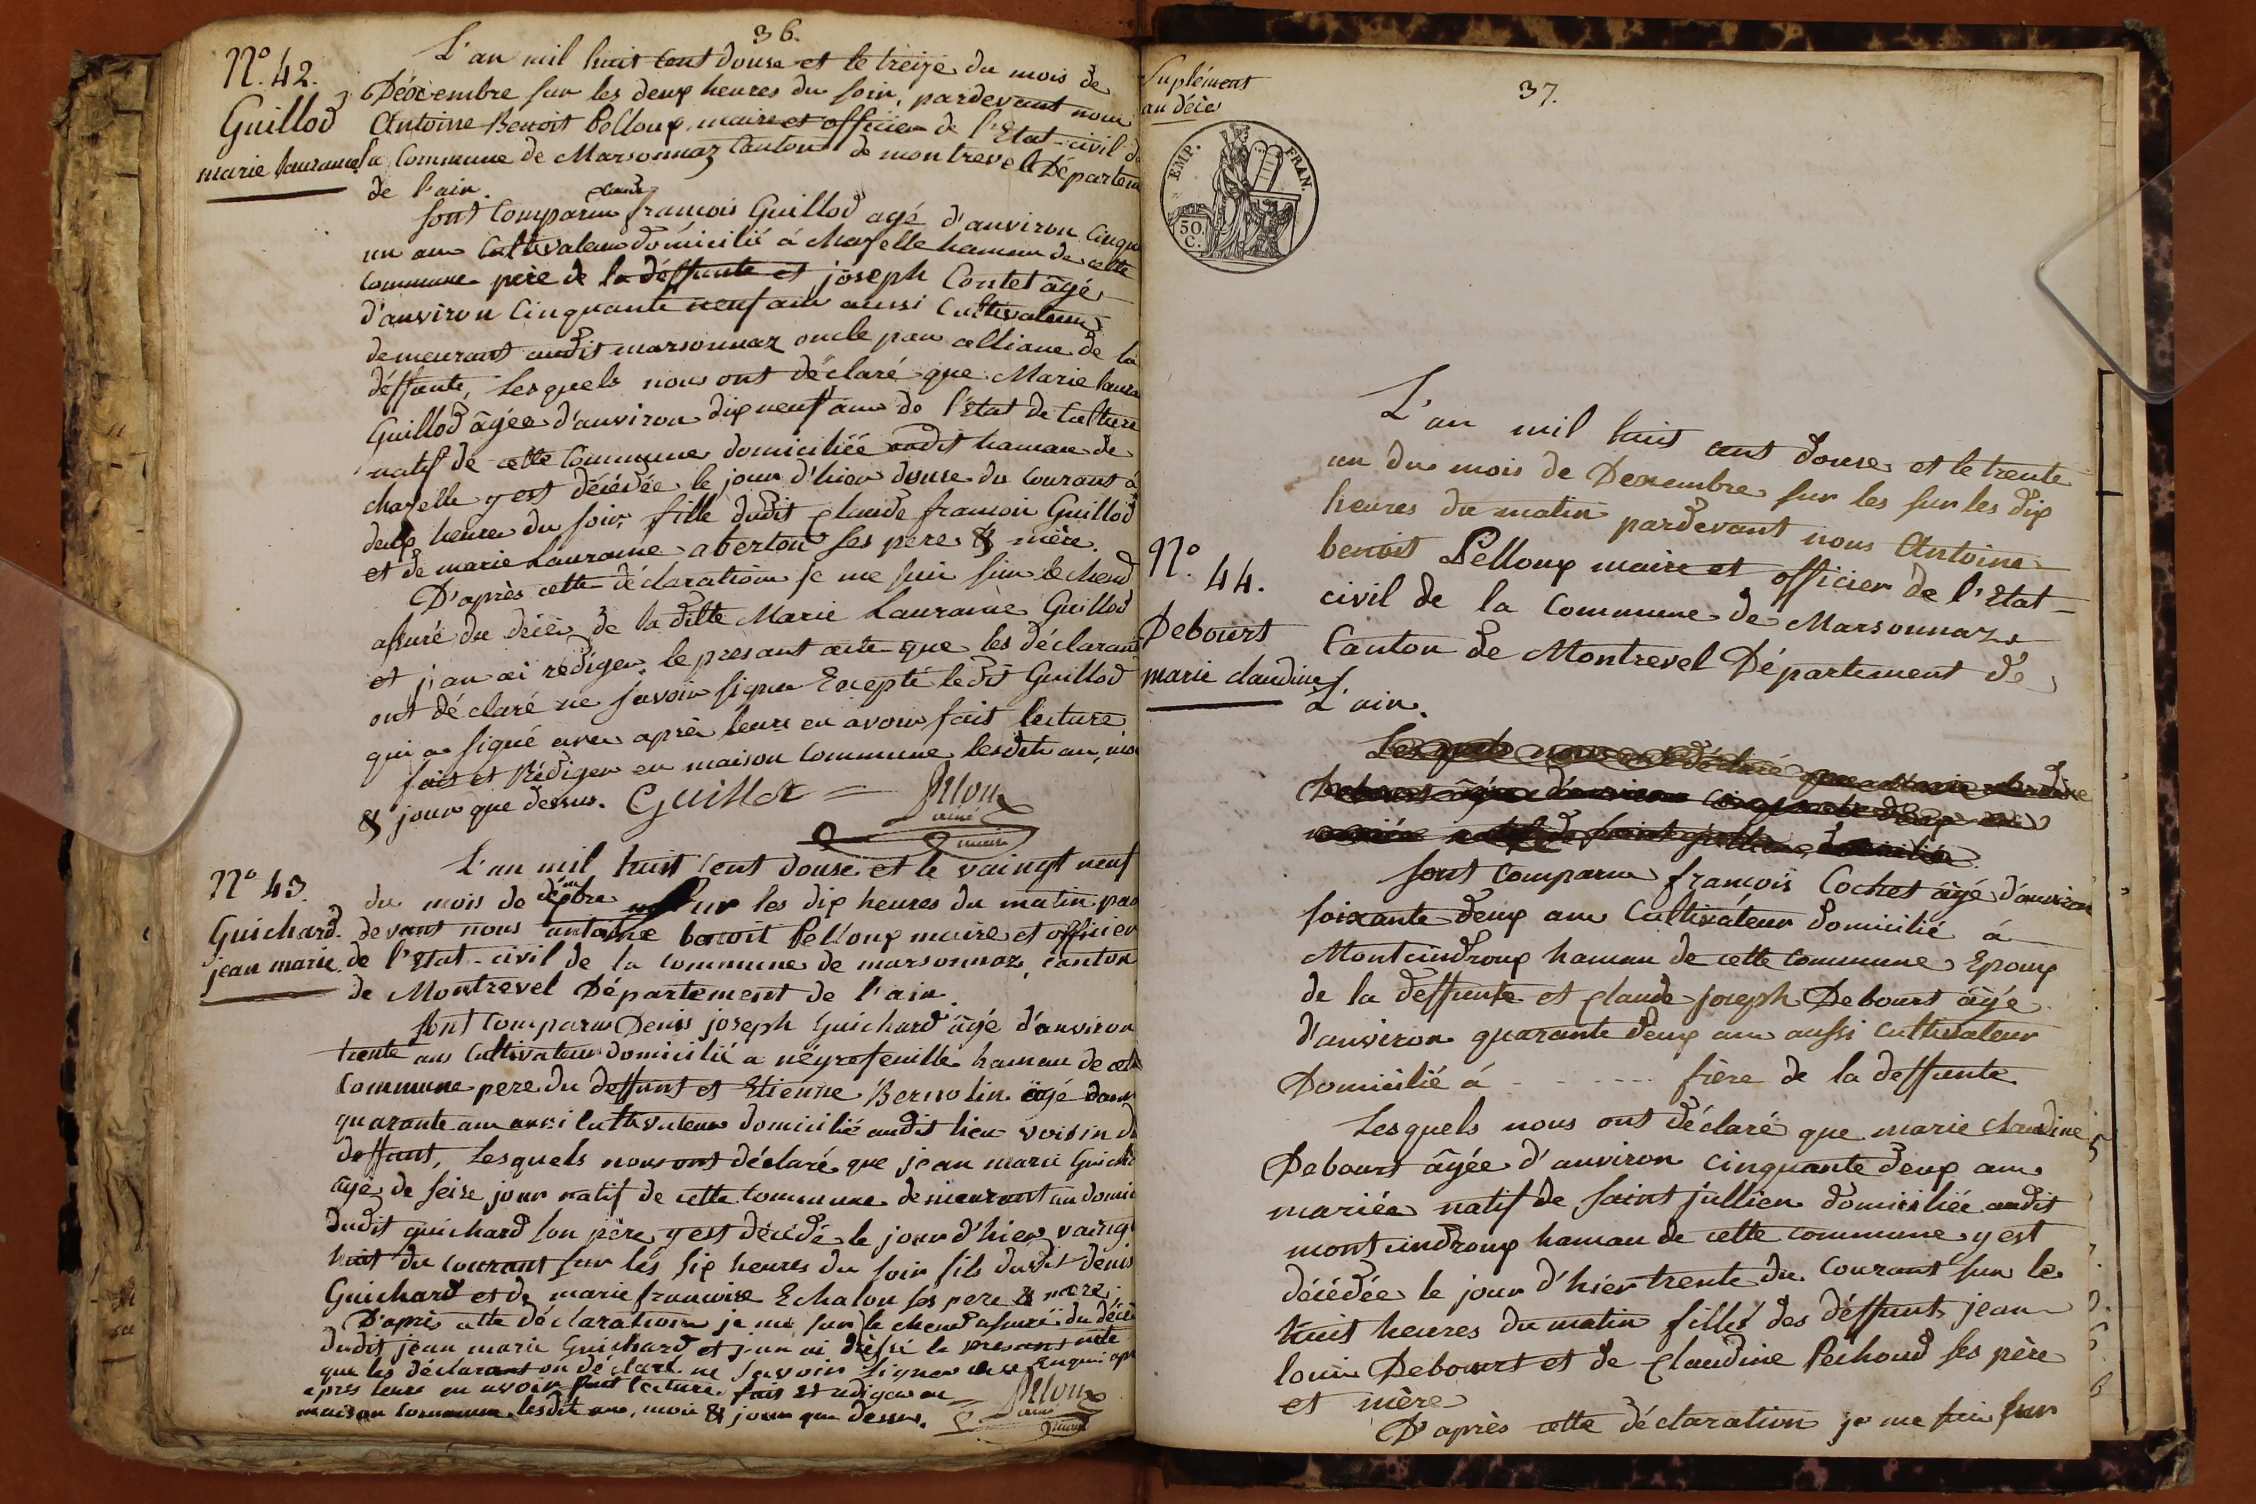 36.
N.° 42.
Guillod
marie lauranne
L'an mil huit cent douse et le treize du mois de
Décembre sur les deux heures du soir, pardevant nous
Antoine Benoit Pelloux, maire et officier de l'Etat-civil de
la Commune de Marsonnaz Canton de montrevel Départem
de l'ain.
claude
sont Comparus francois Guillod agé d'anviron cinqu
un ans Cultivateur domicilié á chaselle hameau de cette
Commune père de la déffunte et joseph Contet âgé
d'anviron Cinquante neuf ans aussi Cultivateur
demeurant audit marsonnaz oncle par alliance de la
déffunte, Lesquels nous ont déclaré que Marie laura
Guillod âgée d'anviron dix neuf ans de l'état de Culture
natif de cette Commune domiciliée audit hamau de
chaselle y est décédée le jour d'hier douse du Courant à
deux heure du soir, fille dudit claude francois Guillod
et de marie Lauranne aberton ses pere & mère.
D'après cette déclaration je me suis sur le chend
assuré du décès de la ditte Marie Lauranne Guillod
et j'an ai rédiger le presant acte que les déclarant
ont déclaré ne savoir signer Excepté ledit Guillod
qui a signé avec après leurs en avoir fait lecture
fait et Rédiger en maison Commune lesdits an, moi
& jour que dessus. Guillot Pelloux
ainé
maire
N° 43.
Guichard
jean marie
L'an mil huit Cent douse et le vaingt neuf
du mois de décbre sur les dix heures du matin par
devant nous antoine benoit Pelloux maire et officier
de l'Etat-civil de la commune de marsonnaz, canton
de Montrevel Département de l'ain.
sont Comparus Denis joseph Guichard âgé d'anviron
trente ans Cultivateur domicilié a négrefeuille hamau de cette
Commune pere du deffunt et Etienne Bernolin âgé danv
quarante ans aussi Cultivateur domicilié audit lieu voisin du
deffunt, Lesquels nous ont déclaré que jean marie Guichd
âgé de seise jour natif de cette Commune demeurant au domic
dudit guichard son père y est décédé le jour d'hier vaingt
huit du courant sur les six heures du soir fils dudit denis
Guichard et de marie francoise Echalon ses pere & mere.
D'après cette déclaration je me suis sur le chend assuré du décès
dudit jean marie Guichard et j'an ai dréssé le presant acte
que les déclarant on déclaré ne savoir Signer
après leurs en avoir fait lecture fait et rediger en
maison Commune lesdits ans, mois & jour que dessus. Pelloux
ainé
maire
Suplément
au décès
37.
EMP. FRAN.
50.
C.
N.° 44.
Debourt
marie claudine
L'an mil huit cent douse et le trente
un du mois de Decembre sur les sur les dix
heures du matin pardevant nous Antoine
benoit Pelloux maire et officier de l'Etat-
civil de la Commune de Marsonnaz
Canton de Montrevel Département de
L'ain.
Lesquels nous ont déclaré que Marie claudine
Debourt âgée d'anviron cinquante deux ans
mariée natif de saint jullien domiciliée
sont Comparus francois Cochet âgé d'anviron
soixante deux ans Cultivateur domicilié à
Montcindroux hamau de cette Commune Epoux
de la deffunte et claude joseph Debourt âgé
d'anviron quarante deux ans aussi Cultivateur
Domicilié à - - - - - - - frère de la deffunte.
Lesquels nous ont déclaré que marie claudine
Debourt âgée d'anviron cinquante deux ans
mariée natif de saint jullien domiciliée audit
montcindroux hamau de cette commune y est
décédée le jour d'hier trente du Courant sur les
huit heures du matin fille des déffunts jean
louis Debourt et de claudine Pechoud ses père
et mère
D'après cette déclaration je me suis sur